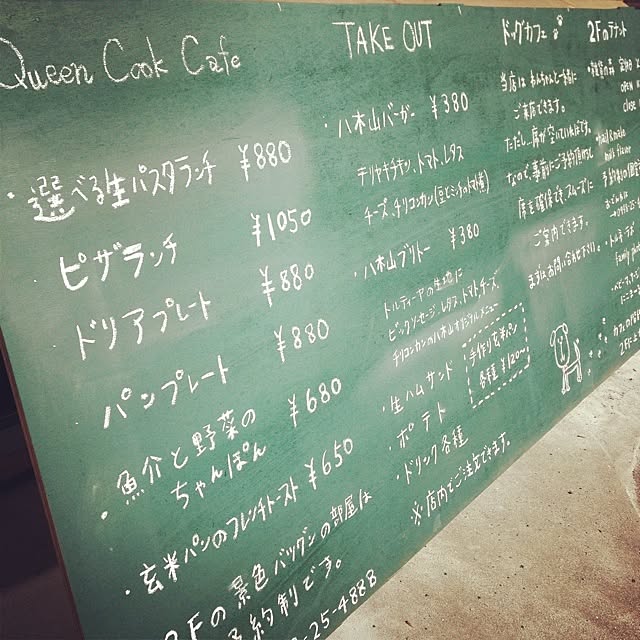 Queen Cook Cafe
・選べる生パスタランチ ¥880
ピザランチ ¥1050
ドリアプレート ¥880
パンプレート ¥880
・魚介と野菜の
ちゃんぽん ¥680
・玄米パンのフレンチトースト ¥650
2Fの景色バツグンの部屋は
予約制です。
-25-4888
TAKE OUT
・八木山バーガー ¥380
テリヤキチキン、トマト、レタス
チーズ、チリコンカン
・八木山ブリトー ¥380
トルティーヤの生地に
ビックソーセージ、レタス、トマト、チーズ、
チリコンカンの八木山オリジナルメニュー
・生ハムサンド
・ポテト
・ドリンク各種
手作り玄米パン
各種 ¥120〜
※店内でもご注文できます。
ドッグカフェ
当店はわんちゃんと一緒に
ご来店できます。
ただし、席が空いていればです。
なので、事前にご予約頂けて
席を確保でき、スムーズに
ご案内できます。
まずは、お問い合わせ下さい。
2Fのテナント
open
close